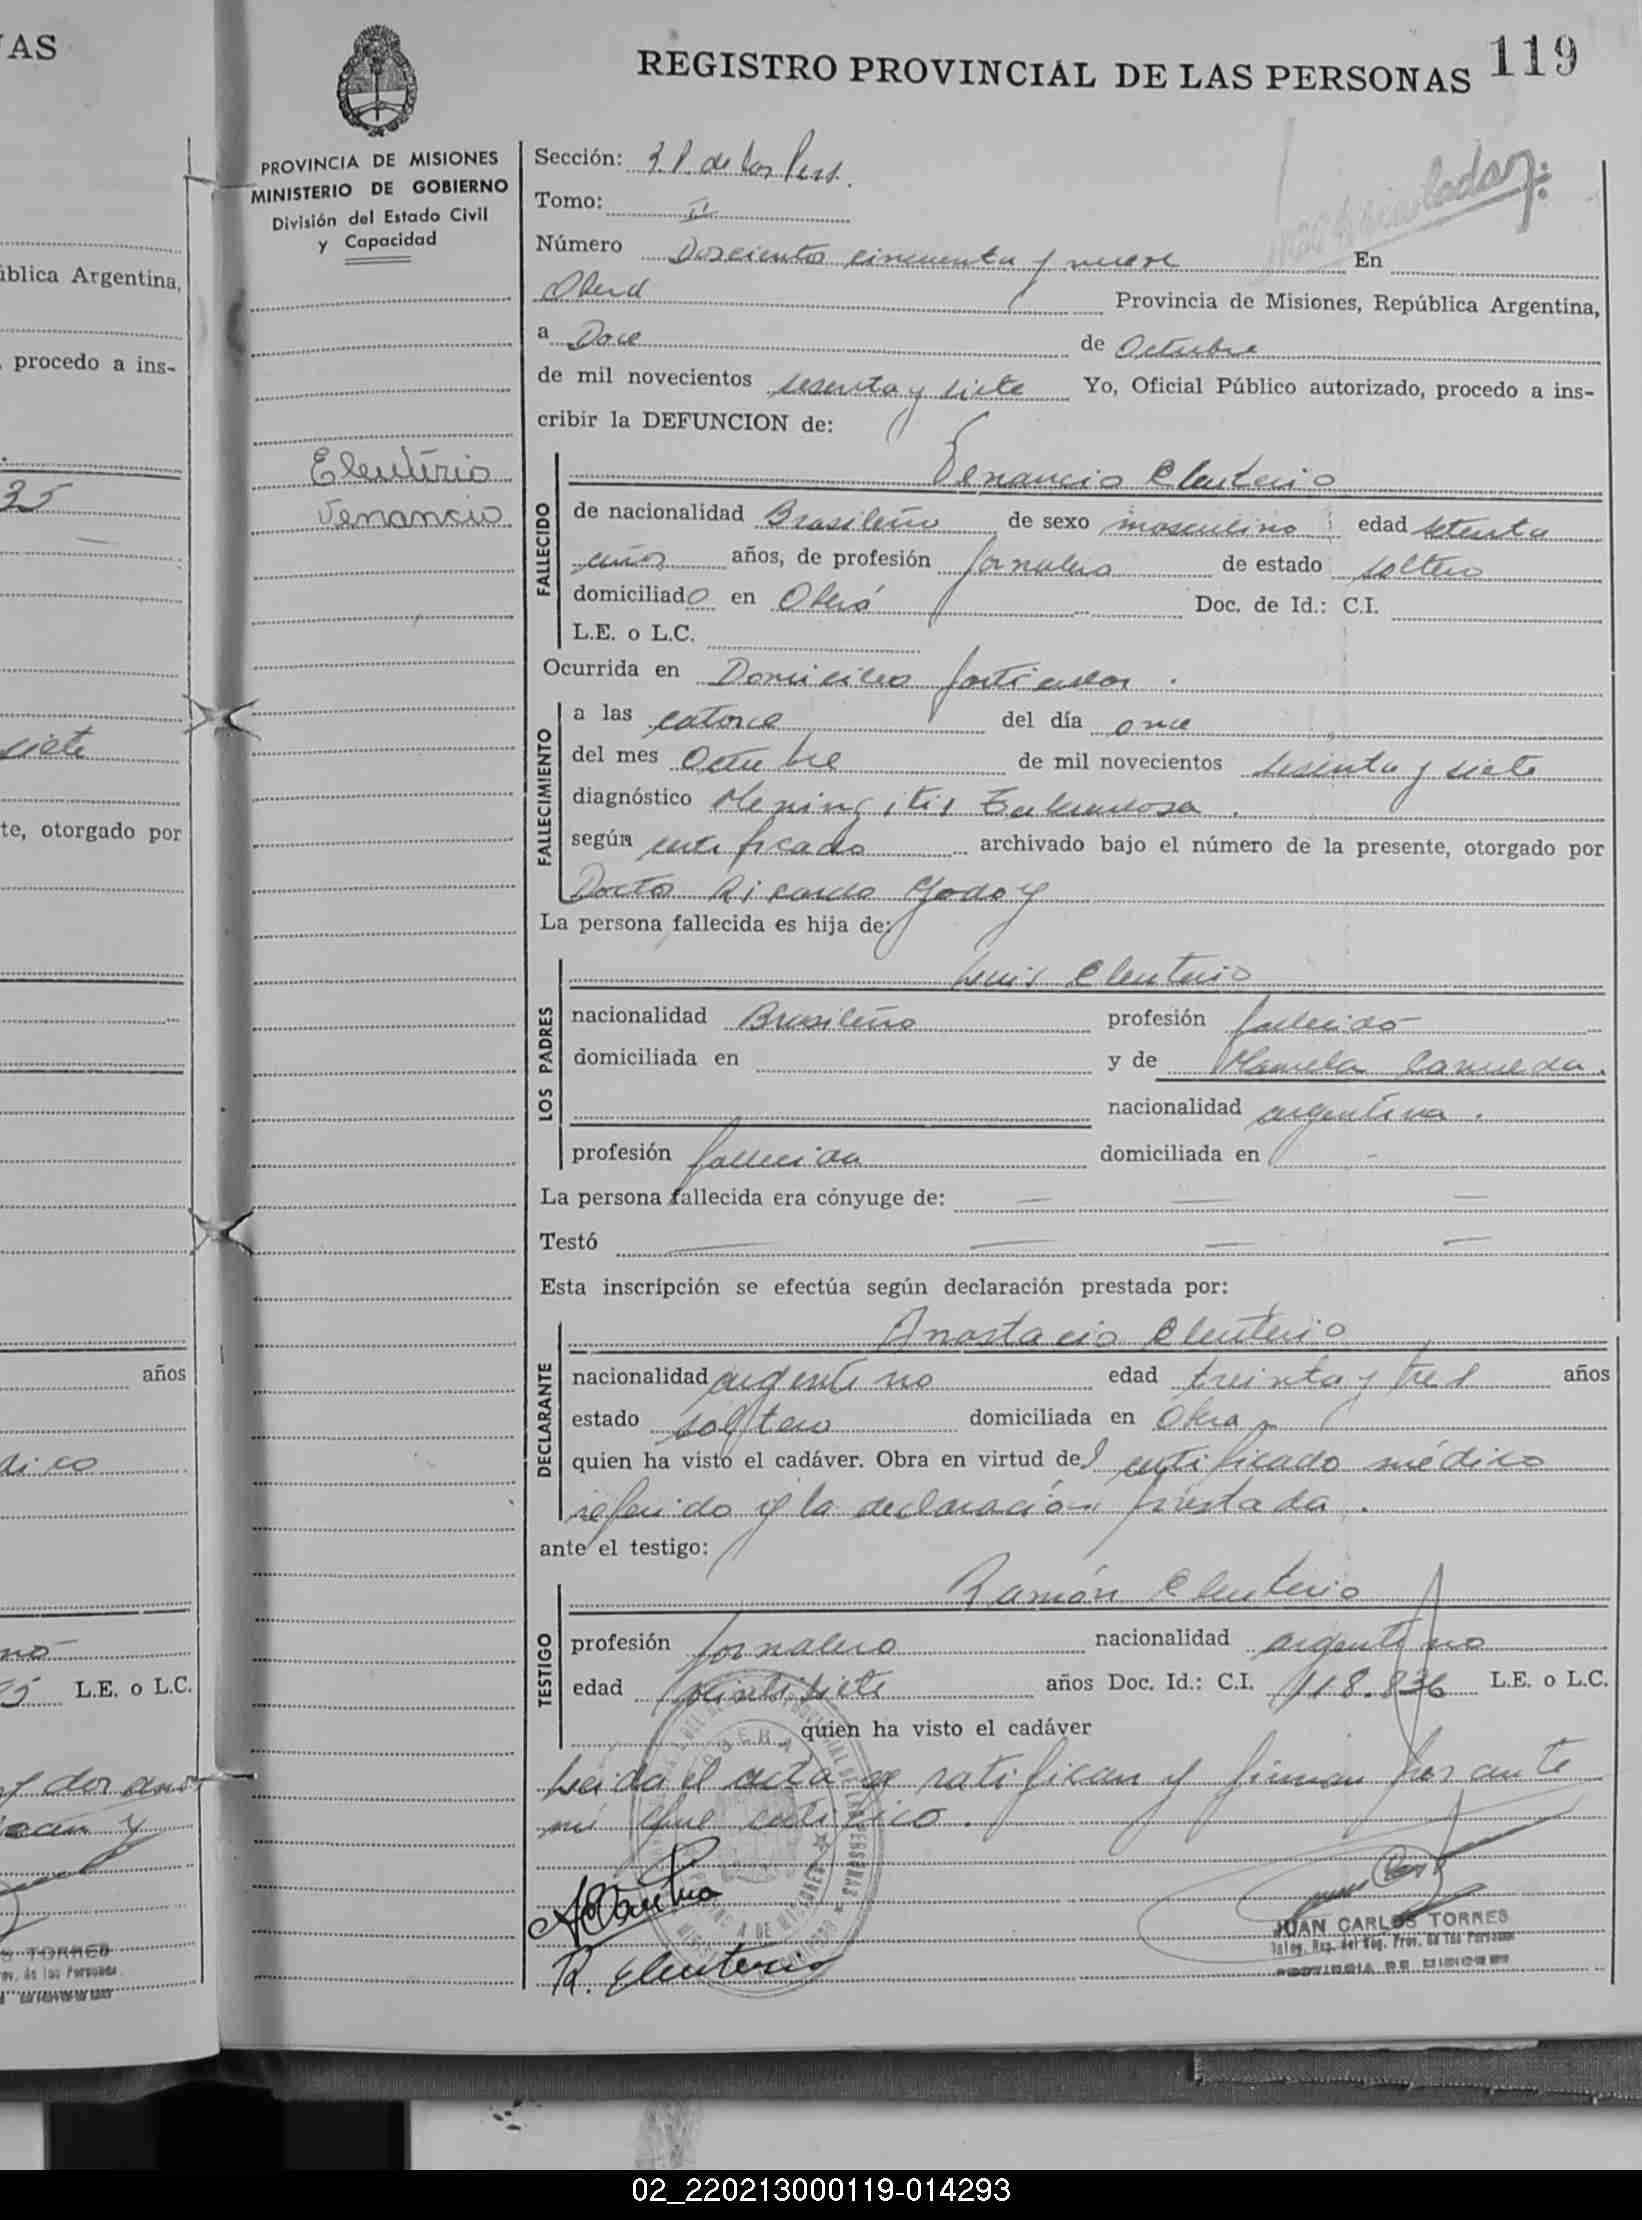 REGISTRO PROVINCIAL DE LAS PERSONAS 119
PROVINCIA DE MISIONES
MINISTERIO DE GOBIERNO
División del Estado Civil
y Capacidad
Eleuterio
Venancio
Sección: R.P. de las Pers.
Tomo: II
Número Doscientos cincuenta y nueve En
Oberá Provincia de Misiones, República Argentina,
a Doce de Octubre
de mil novecientos sesenta y siete Yo, Oficial Público autorizado, procedo a ins-
cribir la DEFUNCION de:
FALLECIDO
Venancio Eleuterio
de nacionalidad Brasileño de sexo masculino edad setenta
años años, de profesión jornalero de estado soltero
domiciliado en Oberá Doc. de Id.: C.I.
L.E. o L.C.
Ocurrida en Domicilio particular.
FALLECIMIENTO
a las catorce del día once
del mes Octubre de mil novecientos sesenta y siete
diagnóstico Meningitis Tuberculosa.
según certificado archivado bajo el número de la presente, otorgado por
Doctor Ricardo Godoy
La persona fallecida es hija de:
LOS PADRES
Luis Eleuterio
nacionalidad Brasileño profesión fallecido
domiciliada en y de
nacionalidad argentina.
profesión fallecida domiciliada en -
La persona fallecida era cónyuge de: — — —
Testó — — — —
Esta inscripción se efectúa según declaración prestada por:
DECLARANTE
Anastacio Eleuterio
nacionalidad argentino edad treinta y tres años
estado soltero domiciliada en Oberá
quien ha visto el cadáver. Obra en virtud del certificado médico
referido y la declaración prestada.
ante el testigo:
TESTIGO
Ramón Eleuterio
profesión jornalero nacionalidad argentino
edad veintisiete años Doc. Id.: C.I. 118.836 L.E. o L.C.
quien ha visto el cadáver
Leida el acta se ratifican y firman por ante
mí que certifico.
R. Eleuterio
JUAN CARLOS TORRES
PROVINCIA DE MISIONES
AS
ública Argentina,
, procedo a ins-
35
siete
te, otorgado por
años
dico
no
L.E. o L.C.
y dos años
ican y
S TORRES
02_220213000119-014293